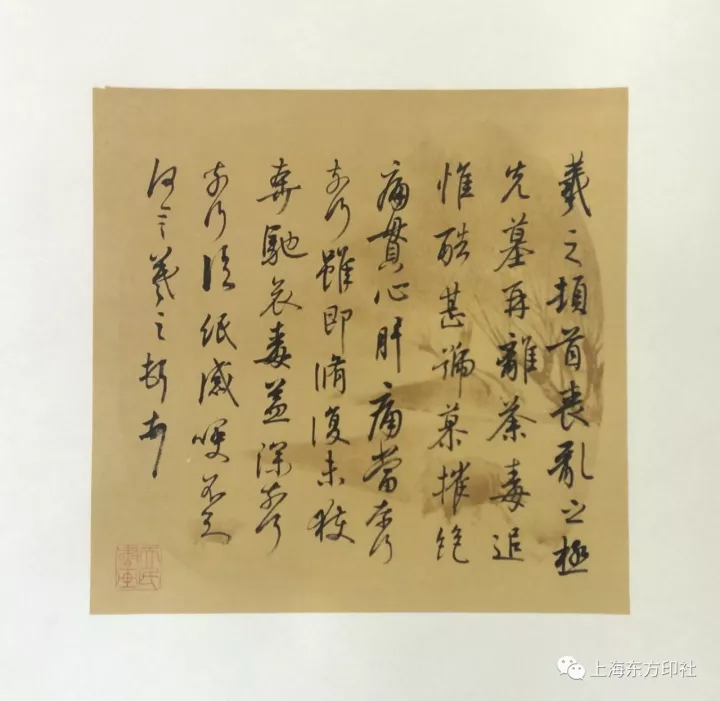 羲之頓首喪亂之極
先墓再離荼毒追
惟酷甚號慕摧絕
痛貫心肝痛當奈何
奈何雖即脩復未獲
奔馳哀毒益深奈何
奈何臨紙感哽不知
何言羲之頓首
上海东方印社